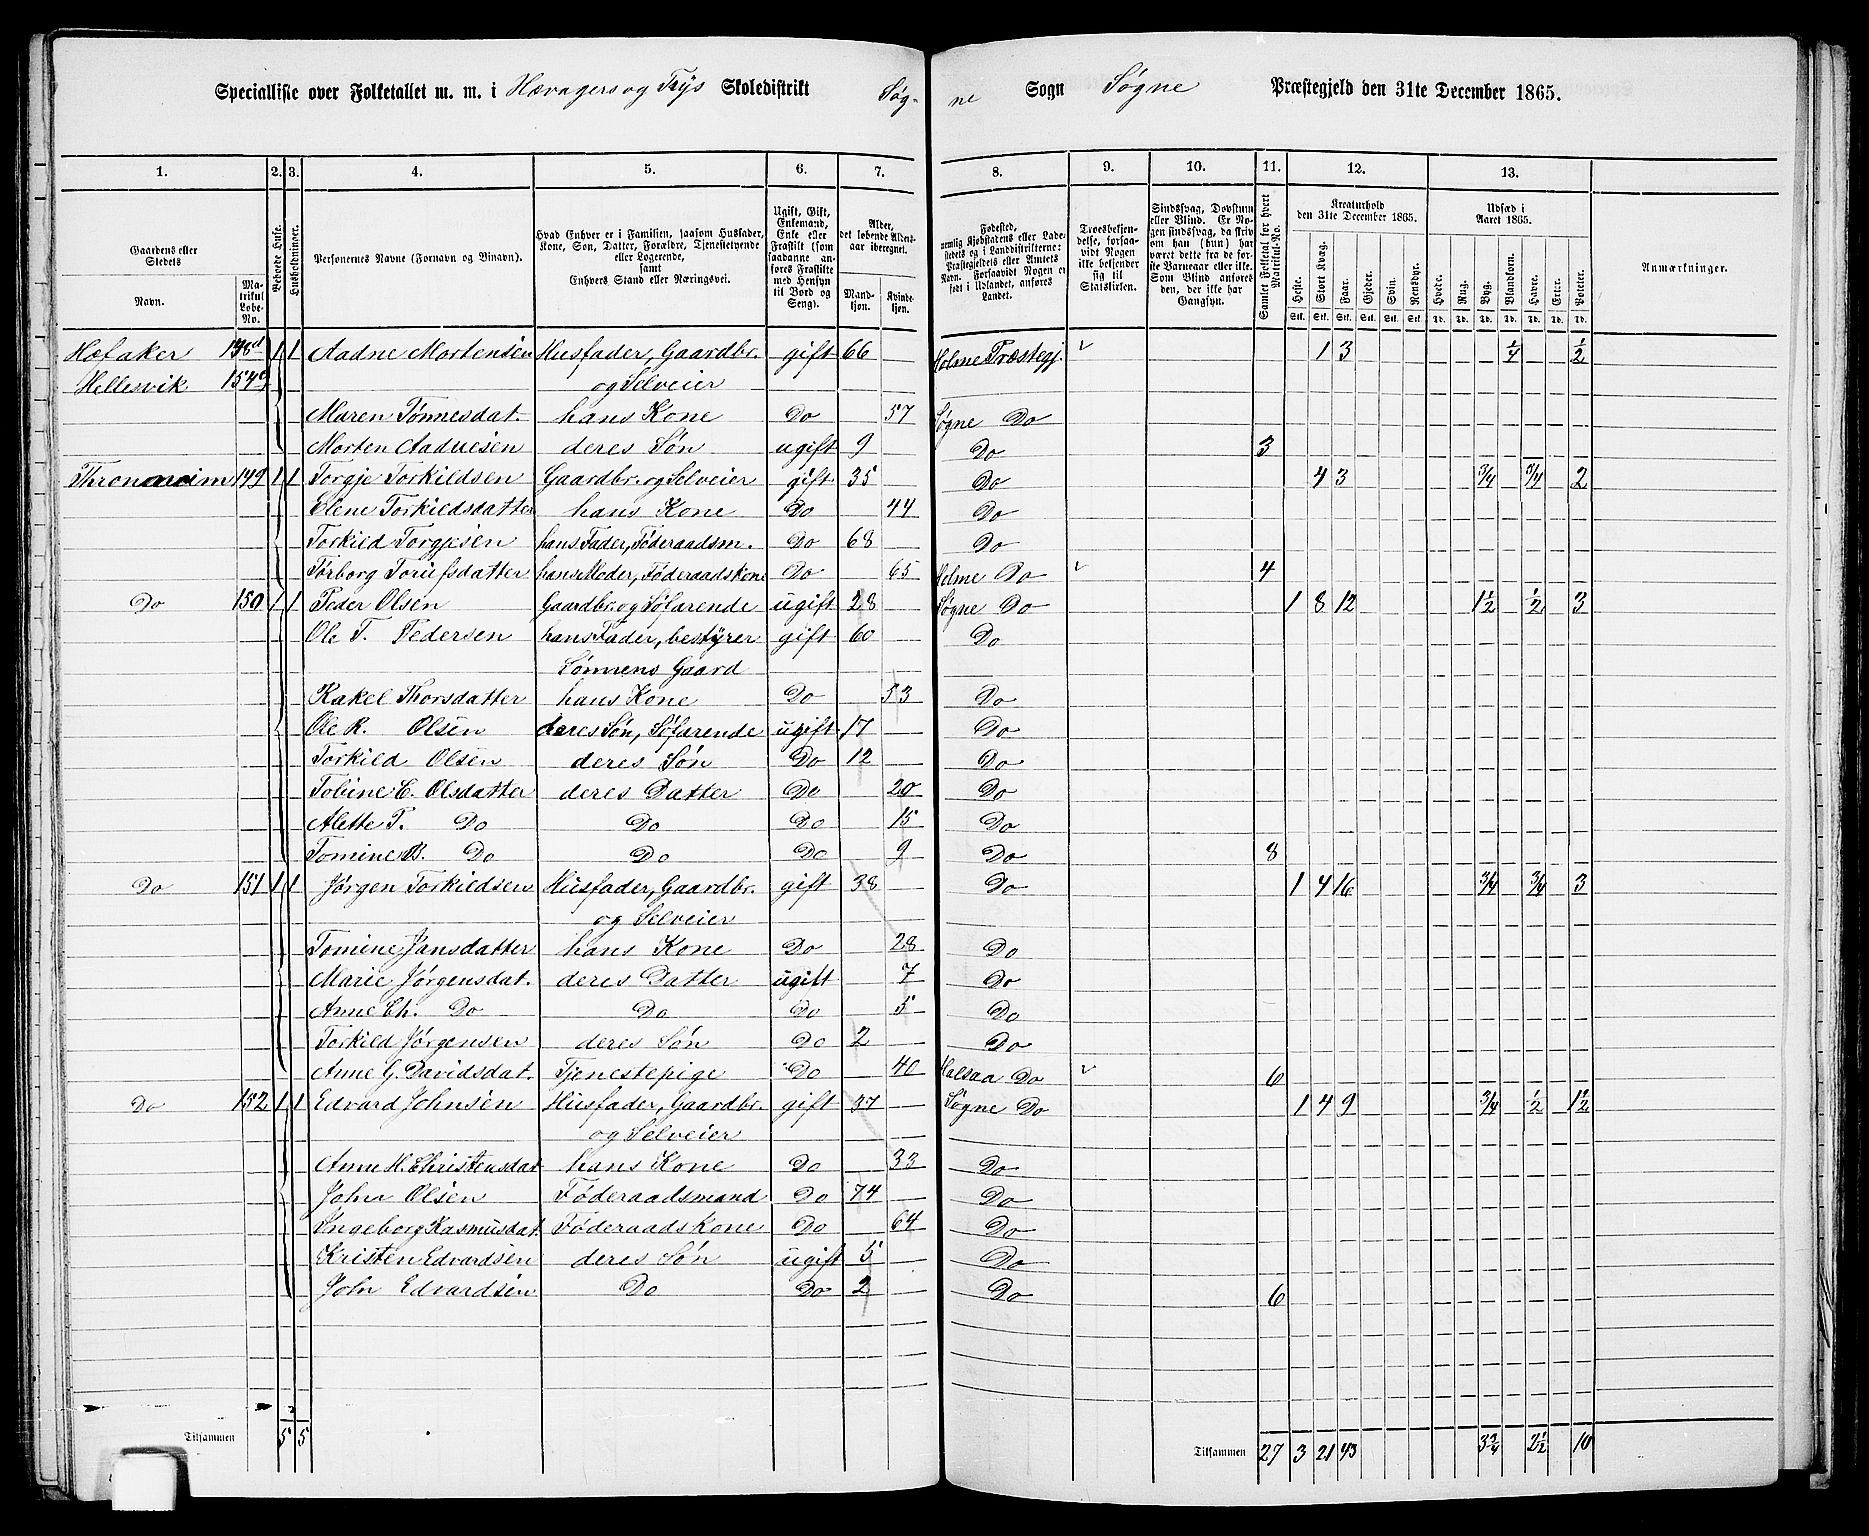 Specialliste over Folketallet m. m. i Hævagers og Trys Skoledistrikt Søgne Sogn Søgne Præstegjeld den 31te December 1865.
1. 2. 3. 4. 5. 6. 7. 8. 9. 10. 11. 12. 13.
Gaardens eller Stedets Navn. Matrikul Løbe-No.
Beboede Huse.
Husholdninger.
Personernes Navne (Fornavn og Binavn).
Hvad Enhver er i Familien, saasom Husfader, Kone, Søn, Datter, Forældre, Tjenestetyende eller Logerende, samt Enhvers Stand eller Næringsvei.
Ugift, Gift, Enkemand, Enke eller Fraskilt (som saadanne anføres Fraskilte med Hensyn til Bord og Seng).
Alder, det løbende Aldersaar iberegnet. Mandkjøn. Kvindekjøn.
Fødested, nemlig Kjøbstadens eller Ladestedets og i Landdistrikterne: Præstegjeldets eller Amtets Navn. Forsaavidt Nogen er født i Udlandet, anføres Landet.
Troesbekjendelse, forsaavidt Nogen ikke bekjender sig til Statskirken.
Sindssvag, Døvstum eller Blind. Er Nogen sindssvag, da skrives om han (hun) har været dette fra de første Barneaar eller ikke. Som Blind anføres den, der ikke har Gangsyn.
Samlet Folketal for hvert Matrikul-No.
Kreaturhold den 31te December 1865. Heste. Stort Kvæg. Faar. Gjeder. Svin. Rensdyr.
Udsæd i Aaret 1865. Hvede. Rug. Byg. Blandkorn. Havre. Erter. Poteter.
Anmærkninger.
Hæfaker 148d 1 1 Aadne Mortensen Husfader, Gaardbr. gift 66 Holme Præstegj. 1 3 1/4 1/2
Hellesvik 154c og Selveier
Maren Tønnesdat. hans Kone Do 57 Søgne Do
Morten Aadnesen deres Søn ugift 9 Do 3
149 1 1 Torgje Torkildsen Gaardbr. og Selveier gift 35 Do 4 3 3/4 3/4 2
Elene Torkildsdatter hans Kone Do 44 Do
Torkild Torgjesen hans Fader, Føderaadsm. Do 68 Do
Tørborg hans Moder, Føderaadskone Do 65 Holme Do 4
Do 150 1 1 Peder Olsen Gaardbr. og Søfarende ugift 28 Søgne Do 1 8 12 1 1/2 1/2 3
Ole T. Pedersen hans Fader, bestyrer gift 60 Do
Sønnens Gaard
Rakel Thorsdatter hans Kone Do 53 Do
Ole R. Olsen deres Søn, Søfarende ugift 17 Do
Torkild Olsen deres Søn Do 12 Do
Tobine E. Olsdatter deres Datter Do 20 Do
Alette T. Do Do Do 15 Do
Tomine B. Do Do Do 9 Do 8
Do 151 1 1 Jørgen Torkildsen Husfader, Gaardbr. gift 38 Do 1 4 16 3/4 3/4 3
og Selveier
Tomine Jansdatter hans Kone Do 28 Do
Marie Jørgensdat. deres Datter ugift 7 Do
Anne Ch. Do Do Do 5 Do
Torkild Jørgensen deres Søn Do 2 Do
Anne G. Davidsdat. Tjenestepige Do 40 Halsaa Do 6
Do 152 1 1 Edvard Johnsen Husfader, Gaardbr. gift 37 Søgne Do 1 4 9 3/4 1/2 1 1/2
og Selveier
Anne H. Christensdat hans Kone Do 33 Do
John Olsen Føderaadsmand Do 74 Do
Ingeborg Rasmusdat. Føderaadskone Do 64 Do
Kristen Edvardsen deres Søn ugift 5 Do
John Edvardsen Do Do 2 Do 6
Tilsammen 5 5 Tilsammen 27 3 21 43 3 3/4 2 1/2 10